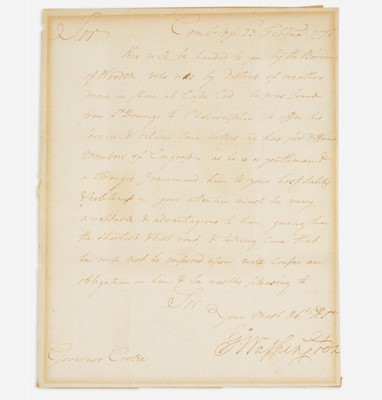 Sir Cambridge 23 Feb 1776
This will be handed to you by the Baron
of Woedtke who was by distress of weather
drove on shore at Cape Cod. he was bound
from St Domingo to Philadelphia to offer his
Service & deliver some letters he has for different
Members of Congress - as he is a gentleman &
a stranger I recommend him to your hospitality
& politeness - your attention must be very
acceptable & advantageous to him, giving him
the shortest & best rout, & taking Care that
he will not be imposed upon will confer an
obligation on him & be most pleasing to
Sir
Your most
Go Washington
Governor Cooke